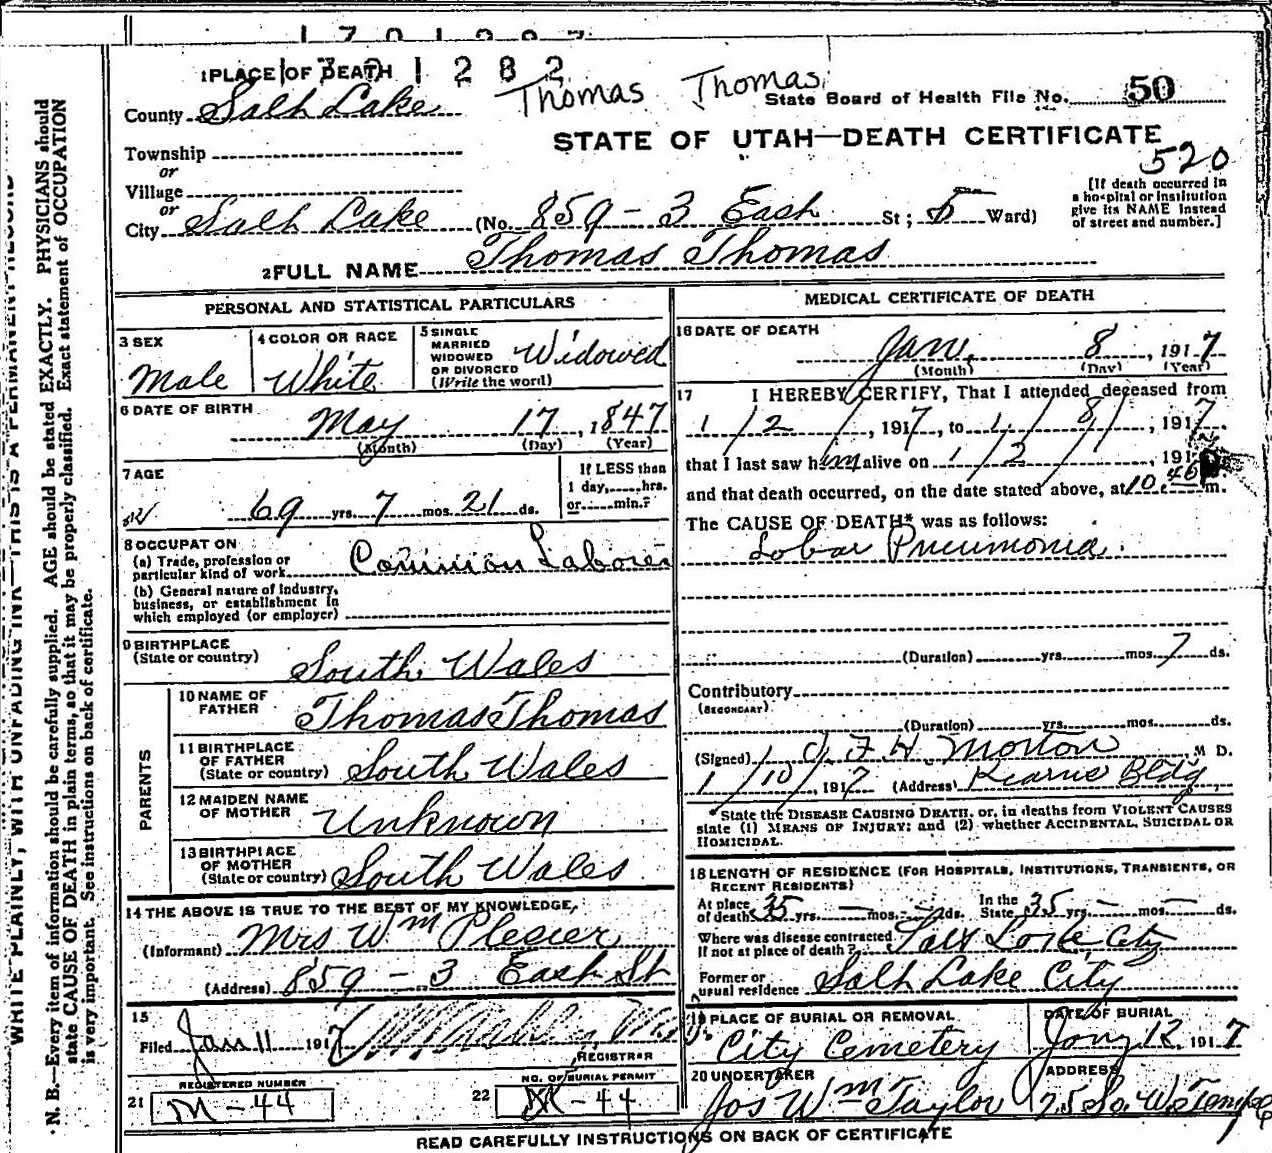 1701282
1 PLACE OF DEATH
Thomas Thomas
County Salt Lake
State Board of Health File No. 50
STATE OF UTAH—DEATH CERTIFICATE
520
Township
or
Village
or
City Salt Lake (No. 859 - 3 East St; 5 Ward)
[If death occurred in a hospital or institution give its NAME instead of street and number.]
2 FULL NAME Thomas Thomas
PERSONAL AND STATISTICAL PARTICULARS
3 SEX
Male
4 COLOR OR RACE
White
5 SINGLE MARRIED WIDOWED OR DIVORCED (Write the word)
Widowed
6 DATE OF BIRTH
May 17, 1847
(Month) (Day) (Year)
7 AGE
69 yrs. 7 mos. 21 ds.
If LESS than 1 day, hrs. or min.?
8 OCCUPATION
(a) Trade, profession or particular kind of work Common Laborer
(b) General nature of industry, business, or establishment in which employed (or employer)
9 BIRTHPLACE
(State or country) South Wales
PARENTS
10 NAME OF FATHER Thomas Thomas
11 BIRTHPLACE OF FATHER
(State or country) South Wales
12 MAIDEN NAME OF MOTHER Unknown
13 BIRTHPLACE OF MOTHER
(State or country) South Wales
14 THE ABOVE IS TRUE TO THE BEST OF MY KNOWLEDGE,
(Informant) Mrs Wm
(Address) 859 - 3 East St
15
Filed Jan 11 1917
REGISTRAR
REGISTERED NUMBER
21 M-44
NO. OF BURIAL PERMIT
22 -44
MEDICAL CERTIFICATE OF DEATH
16 DATE OF DEATH
Jan. 8, 1917
(Month) (Day) (Year)
17 I HEREBY CERTIFY, That I attended deceased from
1/2/, 1917, to 1/8/, 1917
that I last saw him alive on 1/2/, 191
and that death occurred, on the date stated above, at 10 m.
The CAUSE OF DEATH* was as follows:
Lobar Pneumonia.
(Duration) yrs. mos. 7 ds.
Contributory
(SECONDARY)
(Duration) yrs. mos. ds.
(Signed) F. H. Morton, M D.
1/10/, 1917 (Address) Kearns Bldg
*State the DISEASE CAUSING DEATH, or, in deaths from VIOLENT CAUSES
state (1) MEANS OF INJURY; and (2) whether ACCIDENTAL, SUICIDAL OR
HOMICIDAL.
18 LENGTH OF RESIDENCE (FOR HOSPITALS, INSTITUTIONS, TRANSIENTS, OR
RECENT RESIDENTS)
At place of death 35 yrs. — mos. — ds. In the State 35 yrs — mos — ds.
Where was disease contracted
If not at place of death? Salt Lake City
Former or
usual residence Salt Lake City
19 PLACE OF BURIAL OR REMOVAL
City Cemetery
DATE OF BURIAL
Jany 12. 1917
20 UNDERTAKER
Jos Wm Taylor
ADDRESS
So. W. Temple
READ CAREFULLY INSTRUCTIONS ON BACK OF CERTIFICATE
WRITE PLAINLY, WITH UNFADING INK—THIS IS A PERMANENT RECORD
N. B.—Every item of information should be carefully supplied. AGE should be stated EXACTLY. PHYSICIANS should
state CAUSE OF DEATH in plain terms, so that it may be properly classified. Exact statement of OCCUPATION
is very important. See instructions on back of certificate.